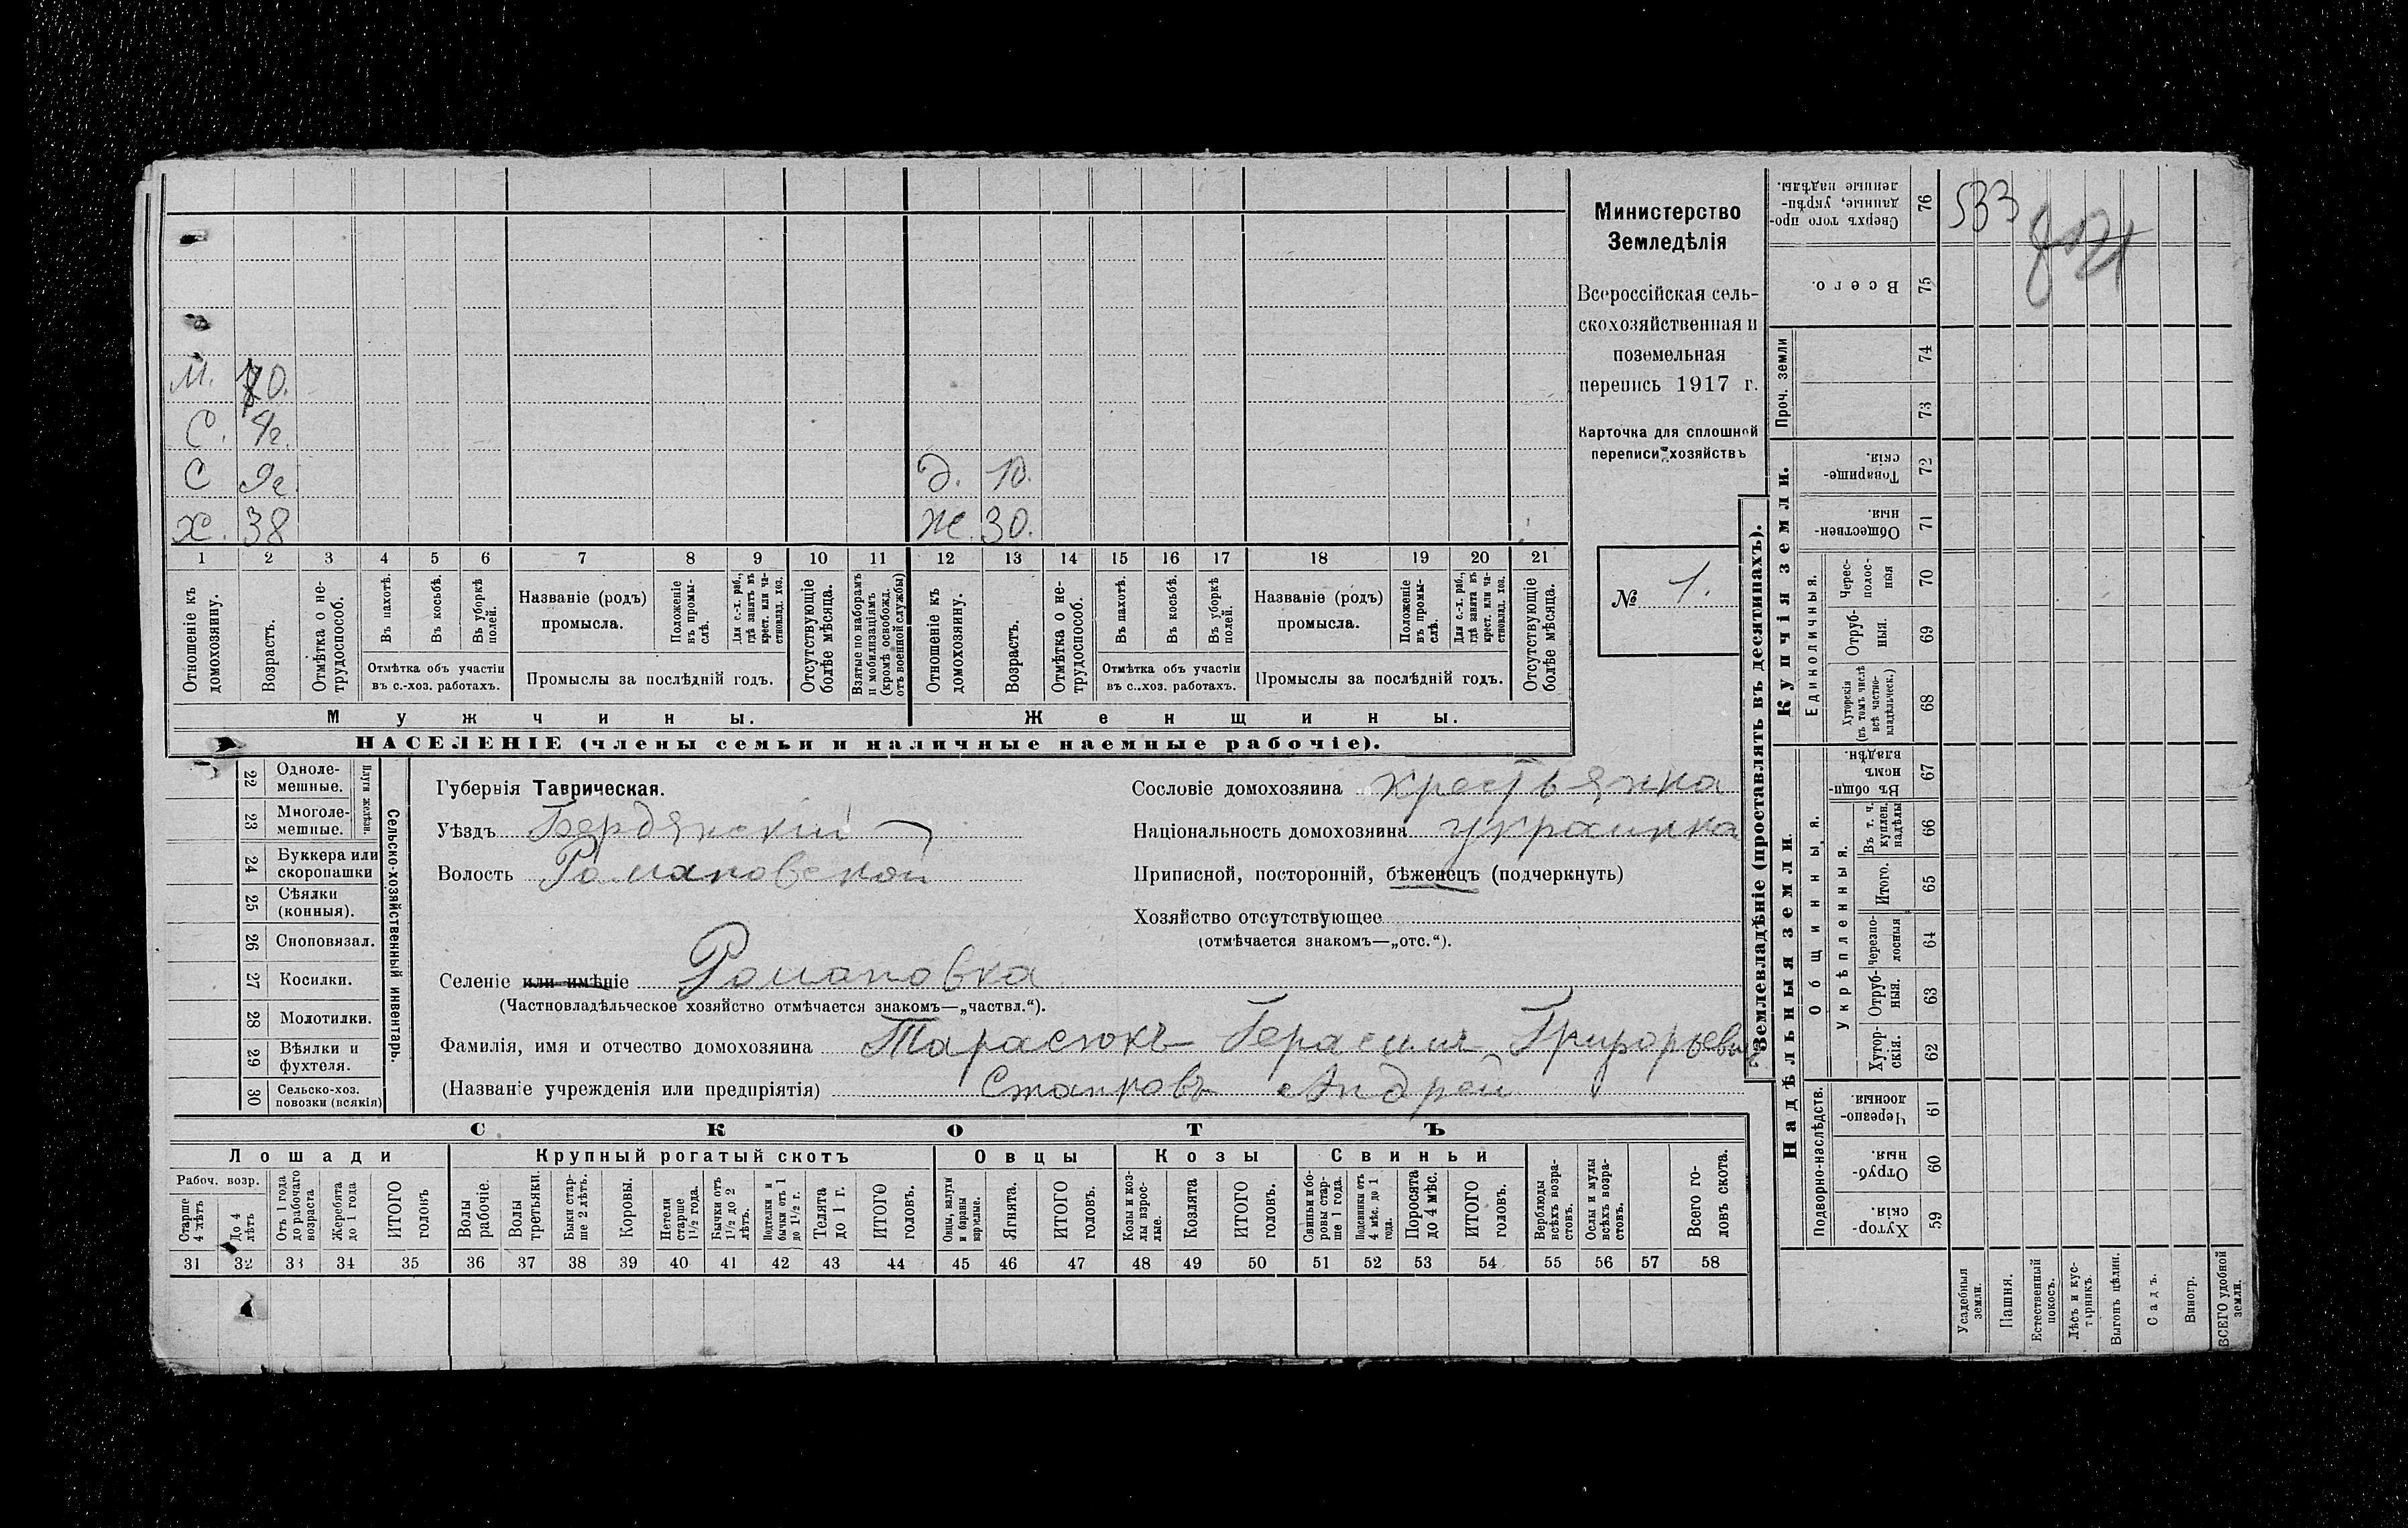 М. 70.
С. 4г.
С 9г. Д. 10.
Х. 38 Ж. 30.
1 2 3 4 5 6 7 8 9 10 11 12 13 14 15 16 17 18 19 20 21
Отношеніе къ домохозяину.
Возрастъ.
Отмѣтка о не-трудоспособ.
Въ пахотѣ.
Въ косьбѣ.
Въ уборкѣ полей.
Отмѣтка объ участіи въ с.-хоз. работахъ.
Названіе (родъ) промысла.
Положеніе въ промы-слѣ.
Для с.-х. раб., гдѣ занятъ въ крест. или ча-стновлад. хоз.
Промыслы за послѣдній годъ.
Отсутствующіе болѣе мѣсяца.
Взятые по наборамъ и мобилизаціямъ (кромѣ освобожд. отъ военной службы)
Отношеніе къ домохозяину.
Возрастъ.
Отмѣтка о не-трудоспособ.
Въ пахотѣ.
Въ косьбѣ.
Въ уборкѣ полей.
Отмѣтка объ участіи въ с.-хоз. работахъ.
Названіе (родъ) промысла.
Положеніе въ промы-слѣ.
Для с.-х. раб., гдѣ занята въ крест. или ча-стновлад. хоз.
Промыслы за послѣдній годъ.
Отсутствующіе болѣе мѣсяца.
Мужчины. Женщины.
НАСЕЛЕНІЕ (члены семьи и наличные наемные рабочіе).
Министерство
Земледѣлія
Всероссійская сель-
скохозяйственная и
поземельная
перепись 1917 г.
Карточка для сплошной
переписи хозяйствъ
№ 1.
Сельско-хозяйственный инвентарь.
Плуги желѣзн.
22 Одноле-мешные.
23 Многоле-мешные.
24 Буккера или скоропашки
25 Сѣялки (конныя).
26 Сноповязал.
27 Косилки.
28 Молотилки.
29 Вѣялки и фухтеля.
30 Сельско-хоз. повозки (всякія)
Губернія Таврическая.
Уѣздъ Бердянскій
Волость Романовской
Селеніе или имѣніе Романовка
(Частновладѣльческое хозяйство отмѣчается знакомъ—„частвл.“).
Сословіе домохозяина крестьянка
Національность домохозяина украинка
Приписной, посторонній, бѣженецъ (подчеркнуть)
Хозяйство отсутствующее
(отмѣчается знакомъ—„отс.“).
Фамилія, имя и отчество домохозяина Тарасюкъ Герасим Григорьевич
(Названіе учрежденія или предпріятія) Андрей
СКОТЪ
Лошади
Рабоч. возр.
Старше 4 лѣтъ
До 4 лѣтъ
Отъ 1 года до рабочаго возраста
Жеребята до 1 года
ИТОГО головъ
Крупный рогатый скотъ
Волы рабочіе.
Волы третьяки.
Быки стар-ше 2 лѣтъ.
Коровы.
Нетели старше 1½ года.
Бычки отъ 1½ до 2 лѣтъ.
Подтелки и бычки отъ 1 до 1½ г.
Телята до 1 г.
ИТОГО головъ.
Овцы
Овцы, валухи и бараны взрослые.
Ягнята.
ИТОГО головъ.
Козы
Козы и коз-лы взрос-лые.
Козлята
ИТОГО головъ.
Свиньи
Свиньи и бо-ровы стар-ше 1 года.
Подсвинки отъ 4 мѣс. до 1 года.
Поросята до 4 мѣс.
ИТОГО головъ.
Верблюды всѣхъ возра-стовъ.
Ослы и мулы всѣхъ возра-стовъ.
Всего го-ловъ скота.
31 32 33 34 35 36 37 38 39 40 41 42 43 44 45 46 47 48 49 50 51 52 53 54 55 56 57 58
Землевладѣніе (проставлять въ десятинахъ).
533
76 Сверхъ того про-данные, укрѣп-ленные надѣлы.
75 Всего.
Проч. земли
74
73
Купчія земли.
72 Товарище-скія.
71 Обществен-ныя.
Единоличныя.
70 Черес-полос-ныя
69 Отруб-ныя.
68 Хуторскія (въ томъ числѣ всѣ частно-владѣльческ.)
Надѣльныя земли.
Общинныя.
67 Въ общин-номъ владѣн.
Укрѣпленныя.
66 Въ т. ч. куплен. надѣлы
65 Итого.
64 Черезпо-лосныя
63 Отруб-ныя.
62 Хутор-скія.
Подворно-наслѣдств.
61 Черезпо-лосныя.
60 Отруб-ныя.
59 Хутор-скія.
Усадебныя земли.
Пашня.
Естественный покосъ.
Лѣсъ и кус-тарникъ.
Выгонъ цѣлин.
Садъ.
Виногр.
ВСЕГО удобной земли.